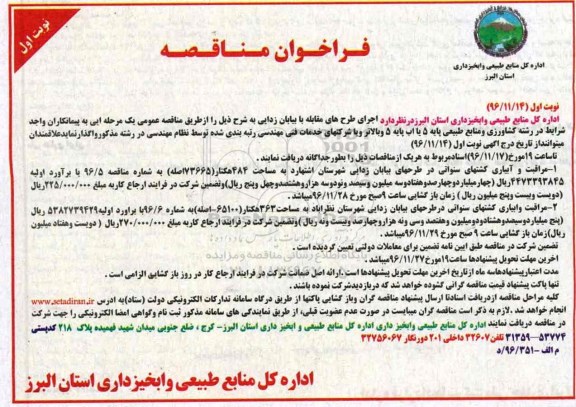 نوبت اول
فراخوان مناقصه
اداره کل منابع طبیعی وابخیزداری
استان البرز
نوبت اول (۹۶/۱۱/۱۴)
اداره کل منابع طبیعی وابخیزداری استان البرزدرنظردارد اجرای طرح های مقابله با بیابان زدایی به شرح ذیل را ازطریق مناقصه عمومی یک مرحله ایی به پیمانکاران واجد
شرایط در رشته کشاورزی ومنابع طبیعی پایه ۵ یا اب پایه ۵ وبالاتر ویا شرکتهای خدمات فنی مهندسی رتبه بندی شده توسط نظام مهندسی در رشته مذکورواگذارنمایدعلاقمندان
میتوانندازتاریخ درج اگهی نوبت اول (۹۶/۱۱/۱۴)
تاساعت۱۹مورخ(۹۶/۱۱/۱۷)اسنادمربوط به هریک ازمناقصات ذیل را بطورجداگانه دریافت نمایند .
۱-مراقبت و آبیاری کشتهای سنواتی در طرحهای بیابان زدایی شهرستان اشتهارد به مساحت ۴۸۴هکتار(۷۳۶۶۵اصله) به شماره مناقصه ۹۶/۵ با برآورد اولیه
۴۴۷۳۳۹۳۸۴۵ریال (چهارمیلیاردوچهارصدوهفتادوسه میلیون وسیصد ونودوسه هزاروهشتصدوچهل وپنج ریال)وتضمین شرکت در فرایند ارجاع کاربه مبلغ ۲۲۵/۰۰۰/۰۰۰ریال
(دویست وبیست وپنج میلیون ریال ) زمان باز گشایی ساعت ۹صبح مورخ ۹۶/۱۱/۲۸میباشد .
۲-مراقبت وابیاری کشتهای سنواتی درطرحهای بیابان زدایی شهرستان نظراباد به مساحت۳۶۳هکتار(۶۵۱۰۰-اصله)به شماره ۹۶/۶با براورد اولیه۵۳۸۲۷۳۹۴۲۹ ریال
(پنج میلیاردسیصدوهشتادودومیلیون وهفتصد وسی ونه هزاروچهارصد وبیست ونه ریال) وتضمین شرکت در فرایند ارجاع کاربه مبلغ ۲۷۰/۰۰۰/۰۰۰ریال ( دویست وهفتاد میلیون
ریال)زمان باز گشایی ساعت ۹ صبح مورخ ۹۶/۱۱/۲۹میباشد.
تضمین شرکت در مناقصه طبق ایین نامه تضمین برای معاملات دولتی تعیین گردیده است .
آخرین مهلت تحویل پیشنهادها ساعت۱۹مورخ۹۶/۱۱/۲۷میباشد .
مدت اعتبارپیشنهادهاسه ماه ازتاریخ اخرین مهلت تحویل پیشنهادهاست .ارائه اصل ضمانت شرکت در فرایند ارجاع کار در روز باز گشایی الزامی است .
تنها پاکت پیشنهاد قیمت مناقصه گرانی گشوده خواهد شد که دربازدیدشرکت نموده باشند .
کلیه مراحل مناقصه ازدریافت اسنادتا ارسال پیشنهاد مناقصه گران وباز گشایی پاکتها از طریق درگاه سامانه تدارکات الکترونیکی دولت (ستاد)به ادرس www.setadiran.ir
انجام خواهد شد .لازم به ذکر است مناقصه گران میبایست در صورت عدم عضویت قبلی، از طریق نمایندگی های سامانه مذکور ثبت نام وگواهی امضا الکترونیکی را جهت شرکت
در مناقصه دریافت نمایند اداره کل منابع طبیعی وابخیز داری اداره کل منابع طبیعی و ابخیز داری استان البرز- کرج ، ضلع جنوبی میدان شهید فهمیده پلاک ۲۱۸ کدپستی
۳۱۳۵۹-۵۳۷۷۴ تلفن۳۲۶۰۷ داخلی ۲۰۱ دورنگار ۳۲۷۵۶۰۶۷
م الف -۹۶/۳۵۱/د
اداره کل منابع طبیعی وابخیزداری استان البرز